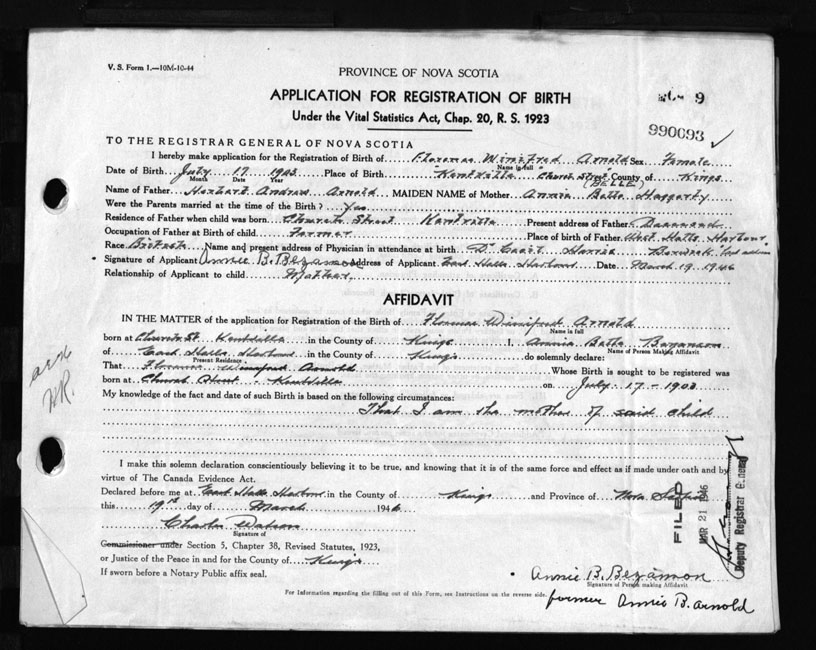 V. S. Form 1.—10M-10-44
PROVINCE OF NOVA SCOTIA
APPLICATION FOR REGISTRATION OF BIRTH
Under the Vital Statistics Act, Chap. 20, R. S. 1923
990093
TO THE REGISTRAR GENERAL OF NOVA SCOTIA
I hereby make application for the Registration of Birth of Florence Winifred Arnold Sex Female
Name in full
Date of Birth July 17 1903 Place of Birth Kentville Church Street County of Kings
Month Date Year
(BELLE)
Name of Father Herbert Andrew Arnold MAIDEN NAME of Mother Annie Belle Haggerty
Were the Parents married at the time of the Birth? Yes
Residence of Father when child was born Church Street Kentville Present address of Father Deceased
Occupation of Father at Birth of child Farmer Place of birth of Father West Halls Harbour
Race British Name and present address of Physician in attendance at birth Harris Berwick
Signature of Applicant Annie B. Bezanson Address of Applicant East Halls Harbour Date March 19 1946
Relationship of Applicant to child Mother
AFFIDAVIT
IN THE MATTER of the application for Registration of the Birth of Florence Winifred Arnold
Name in full
born at Church St. Kentville in the County of Kings I, Annie Belle Bezanson
Name of Person Making Affidavit
of East Halls Harbour in the County of Kings do solemnly declare:
Present Residence
That Florence Winifred Arnold Whose Birth is sought to be registered was
born at Church Street Kentville on July 17 - 1903
My knowledge of the fact and date of such Birth is based on the following circumstances:
That I am the mother of said child
I make this solemn declaration conscientiously believing it to be true, and knowing that it is of the same force and effect as if made under oath and by
virtue of The Canada Evidence Act.
Declared before me at East Halls Harbour in the County of Kings and Province of Nova Scotia
this 19th day of March 1946
Charles Watson
Signature of
Commissioner under Section 5, Chapter 38, Revised Statutes, 1923,
or Justice of the Peace in and for the County of Kings
If sworn before a Notary Public affix seal.
Annie B. Bezanson
Signature of Person making Affidavit
former Annie B. Arnold
For Information regarding the filling out of this Form, see Instructions on the reverse side.
FILED
MAR 21 1946
Deputy Registrar General